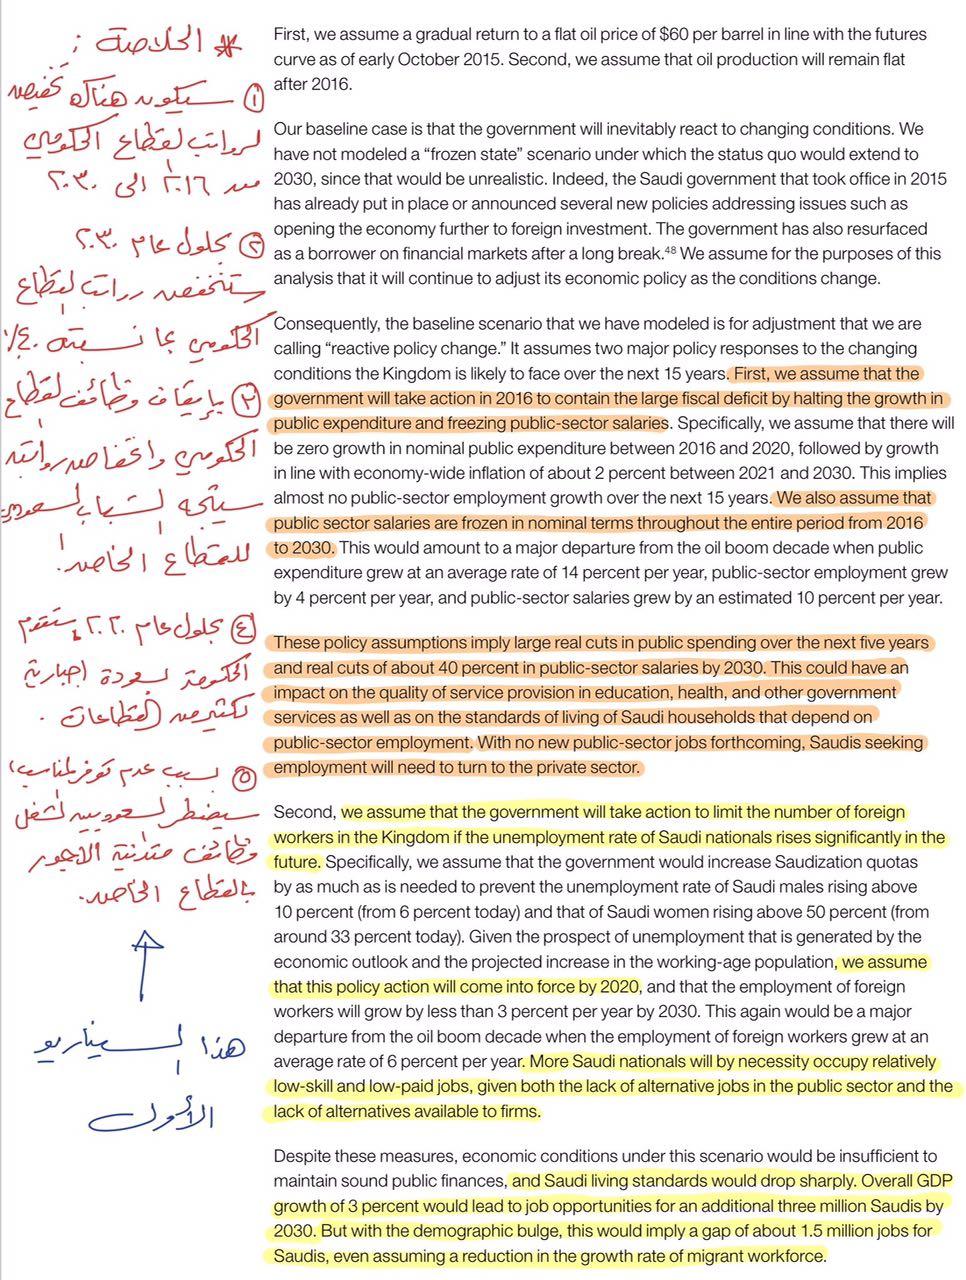 * الخلاصة :
① سيكون هناك تخفيض
لرواتب القطاع الحكومي
من ٢٠١٦ الى ٢٠٣٠
② بحلول عام ٢٠٣٠
ستنخفض رواتب القطاع
الحكومي بما نسبته ٤٠٪
③ بإيقاف وظائف القطاع
الحكومي وانخفاض رواتبه
سيتجه الشباب السعودي
للقطاع الخاص.
④ بحلول عام ٢٠٢٠ ستقوم
الحكومة بسعودة إجبارية
لكثير من القطاعات .
⑤ بسبب عدم توفر المناسب،
سيضطر السعوديين لشغل
وظائف متدنية الاجور
بالقطاع الخاص.
هذا السيناريو
الأول
First, we assume a gradual return to a flat oil price of $60 per barrel in line with the futures
curve as of early October 2015. Second, we assume that oil production will remain flat
after 2016.
Our baseline case is that the government will inevitably react to changing conditions. We
have not modeled a “frozen state” scenario under which the status quo would extend to
2030, since that would be unrealistic. Indeed, the Saudi government that took office in 2015
has already put in place or announced several new policies addressing issues such as
opening the economy further to foreign investment. The government has also resurfaced
as a borrower on financial markets after a long break.⁴⁸ We assume for the purposes of this
analysis that it will continue to adjust its economic policy as the conditions change.
Consequently, the baseline scenario that we have modeled is for adjustment that we are
calling “reactive policy change.” It assumes two major policy responses to the changing
conditions the Kingdom is likely to face over the next 15 years. First, we assume that the
government will take action in 2016 to contain the large fiscal deficit by halting the growth in
public expenditure and freezing public-sector salaries. Specifically, we assume that there will
be zero growth in nominal public expenditure between 2016 and 2020, followed by growth
in line with economy-wide inflation of about 2 percent between 2021 and 2030. This implies
almost no public-sector employment growth over the next 15 years. We also assume that
public sector salaries are frozen in nominal terms throughout the entire period from 2016
to 2030. This would amount to a major departure from the oil boom decade when public
expenditure grew at an average rate of 14 percent per year, public-sector employment grew
by 4 percent per year, and public-sector salaries grew by an estimated 10 percent per year.
These policy assumptions imply large real cuts in public spending over the next five years
and real cuts of about 40 percent in public-sector salaries by 2030. This could have an
impact on the quality of service provision in education, health, and other government
services as well as on the standards of living of Saudi households that depend on
public-sector employment. With no new public-sector jobs forthcoming, Saudis seeking
employment will need to turn to the private sector.
Second, we assume that the government will take action to limit the number of foreign
workers in the Kingdom if the unemployment rate of Saudi nationals rises significantly in the
future. Specifically, we assume that the government would increase Saudization quotas
by as much as is needed to prevent the unemployment rate of Saudi males rising above
10 percent (from 6 percent today) and that of Saudi women rising above 50 percent (from
around 33 percent today). Given the prospect of unemployment that is generated by the
economic outlook and the projected increase in the working-age population, we assume
that this policy action will come into force by 2020, and that the employment of foreign
workers will grow by less than 3 percent per year by 2030. This again would be a major
departure from the oil boom decade when the employment of foreign workers grew at an
average rate of 6 percent per year. More Saudi nationals will by necessity occupy relatively
low-skill and low-paid jobs, given both the lack of alternative jobs in the public sector and the
lack of alternatives available to firms.
Despite these measures, economic conditions under this scenario would be insufficient to
maintain sound public finances, and Saudi living standards would drop sharply. Overall GDP
growth of 3 percent would lead to job opportunities for an additional three million Saudis by
2030. But with the demographic bulge, this would imply a gap of about 1.5 million jobs for
Saudis, even assuming a reduction in the growth rate of migrant workforce.